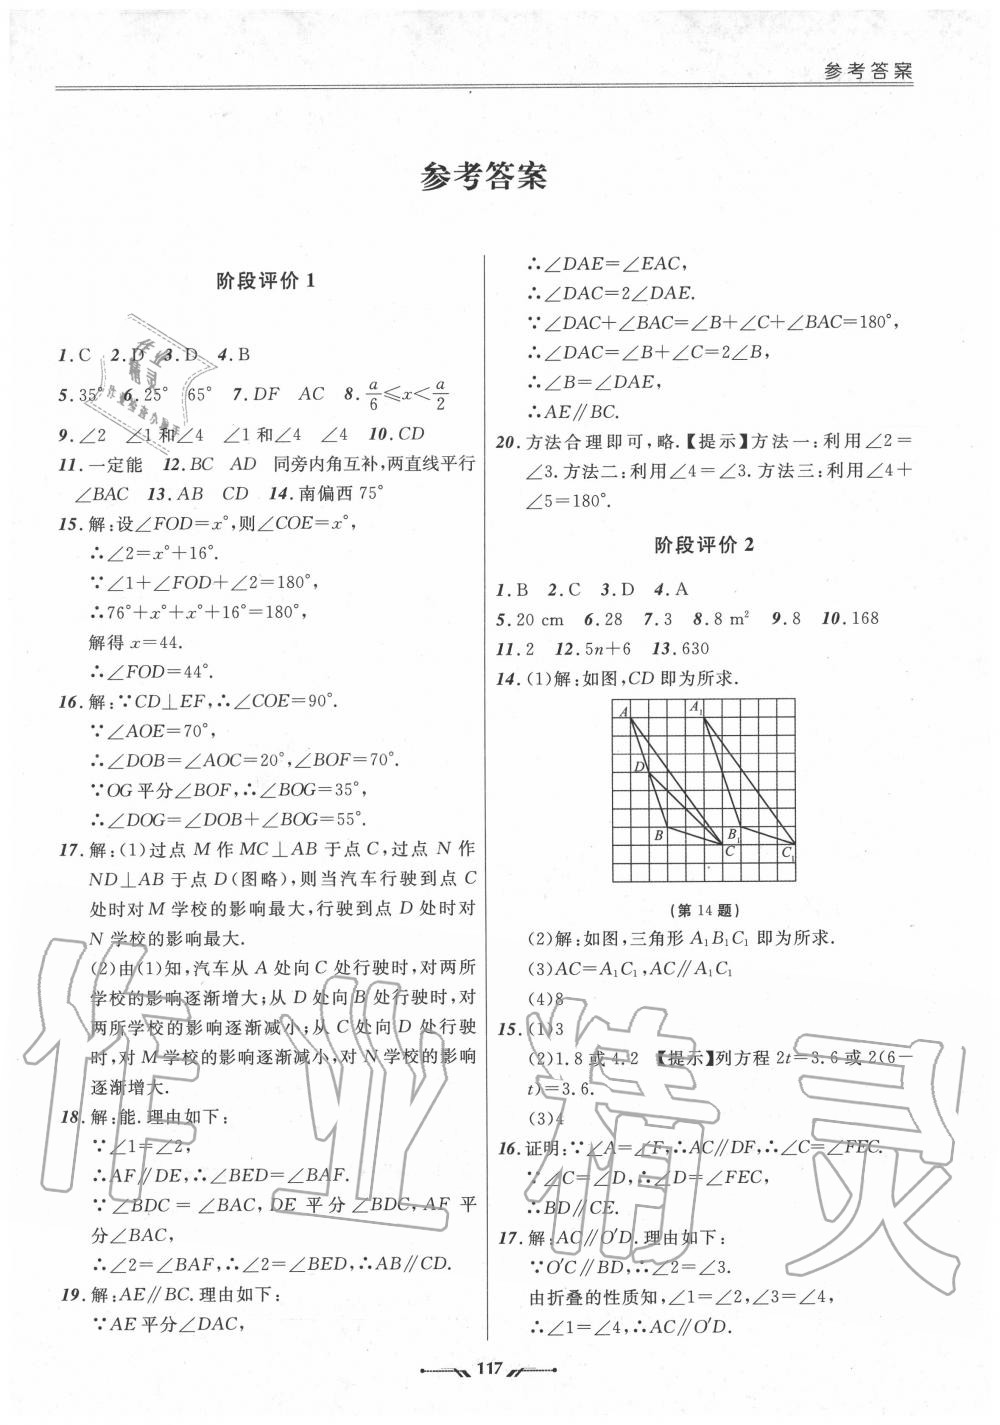 参考答案
参考答案
阶段评价1
1.C 2.D 3.D 4.B
5.35° 6.25° 65° 7.DF AC 8.a/6≤x<a/2
9.∠2 ∠1和∠4 ∠1和∠4 ∠4 10.CD
11.一定能 12.BC AD 同旁内角互补,两直线平行
∠BAC 13.AB CD 14.南偏西75°
15.解:设∠FOD=x°,则∠COE=x°,
∴∠2=x°+16°.
∵∠1+∠FOD+∠2=180°,
∴76°+x°+x°+16°=180°,
解得x=44.
∴∠FOD=44°.
16.解:∵CD⊥EF,∴∠COE=90°.
∵∠AOE=70°,
∴∠DOB=∠AOC=20°,∠BOF=70°.
∵OG平分∠BOF,∴∠BOG=35°,
∴∠DOG=∠DOB+∠BOG=55°.
17.解:(1)过点M作MC⊥AB于点C,过点N作
ND⊥AB于点D(图略),则当汽车行驶到点C
处时对M学校的影响最大,行驶到点D处时对
N学校的影响最大.
(2)由(1)知,汽车从A处向C处行驶时,对两所
学校的影响逐渐增大;从D处向B处行驶时,对
两所学校的影响逐渐减小;从C处向D处行驶
时,对M学校的影响逐渐减小,对N学校的影响
逐渐增大.
18.解:能.理由如下:
∵∠1=∠2,
∴AF∥DE,∴∠BED=∠BAF.
∵∠BDC=∠BAC,DE平分∠BDC,AF平
分∠BAC,
∴∠2=∠BAF,∴∠2=∠BED,∴AB∥CD.
19.解:AE∥BC.理由如下:
∵AE平分∠DAC,
∴∠DAE=∠EAC,
∴∠DAC=2∠DAE.
∵∠DAC+∠BAC=∠B+∠C+∠BAC=180°,
∴∠DAC=∠B+∠C=2∠B,
∴∠B=∠DAE,
∴AE∥BC.
20.方法合理即可,略.【提示】方法一:利用∠2=
∠3.方法二:利用∠4=∠3.方法三:利用∠4+
∠5=180°.
阶段评价2
1.B 2.C 3.D 4.A
5.20 cm 6.28 7.3 8.8 m² 9.8 10.168
11.2 12.5n+6 13.630
14.(1)解:如图,CD即为所求.
A A₁
D
B B₁
C C₁
(第14题)
(2)解:如图,三角形A₁B₁C₁即为所求.
(3)AC=A₁C₁,AC∥A₁C₁
(4)8
15.(1)3
(2)1.8或4.2 【提示】列方程2t=3.6或2(6−
t)=3.6.
(3)4
16.证明:∵∠A=∠F,∴AC∥DF,∴∠C=∠FEC.
∵∠C=∠D,∴∠D=∠FEC,
∴BD∥CE.
17.解:AC∥O′D.理由如下:
∵O′C∥BD,∴∠2=∠3.
由折叠的性质知,∠1=∠2,∠3=∠4,
∴∠1=∠4,∴AC∥O′D.
117
作业精灵
作业
精灵